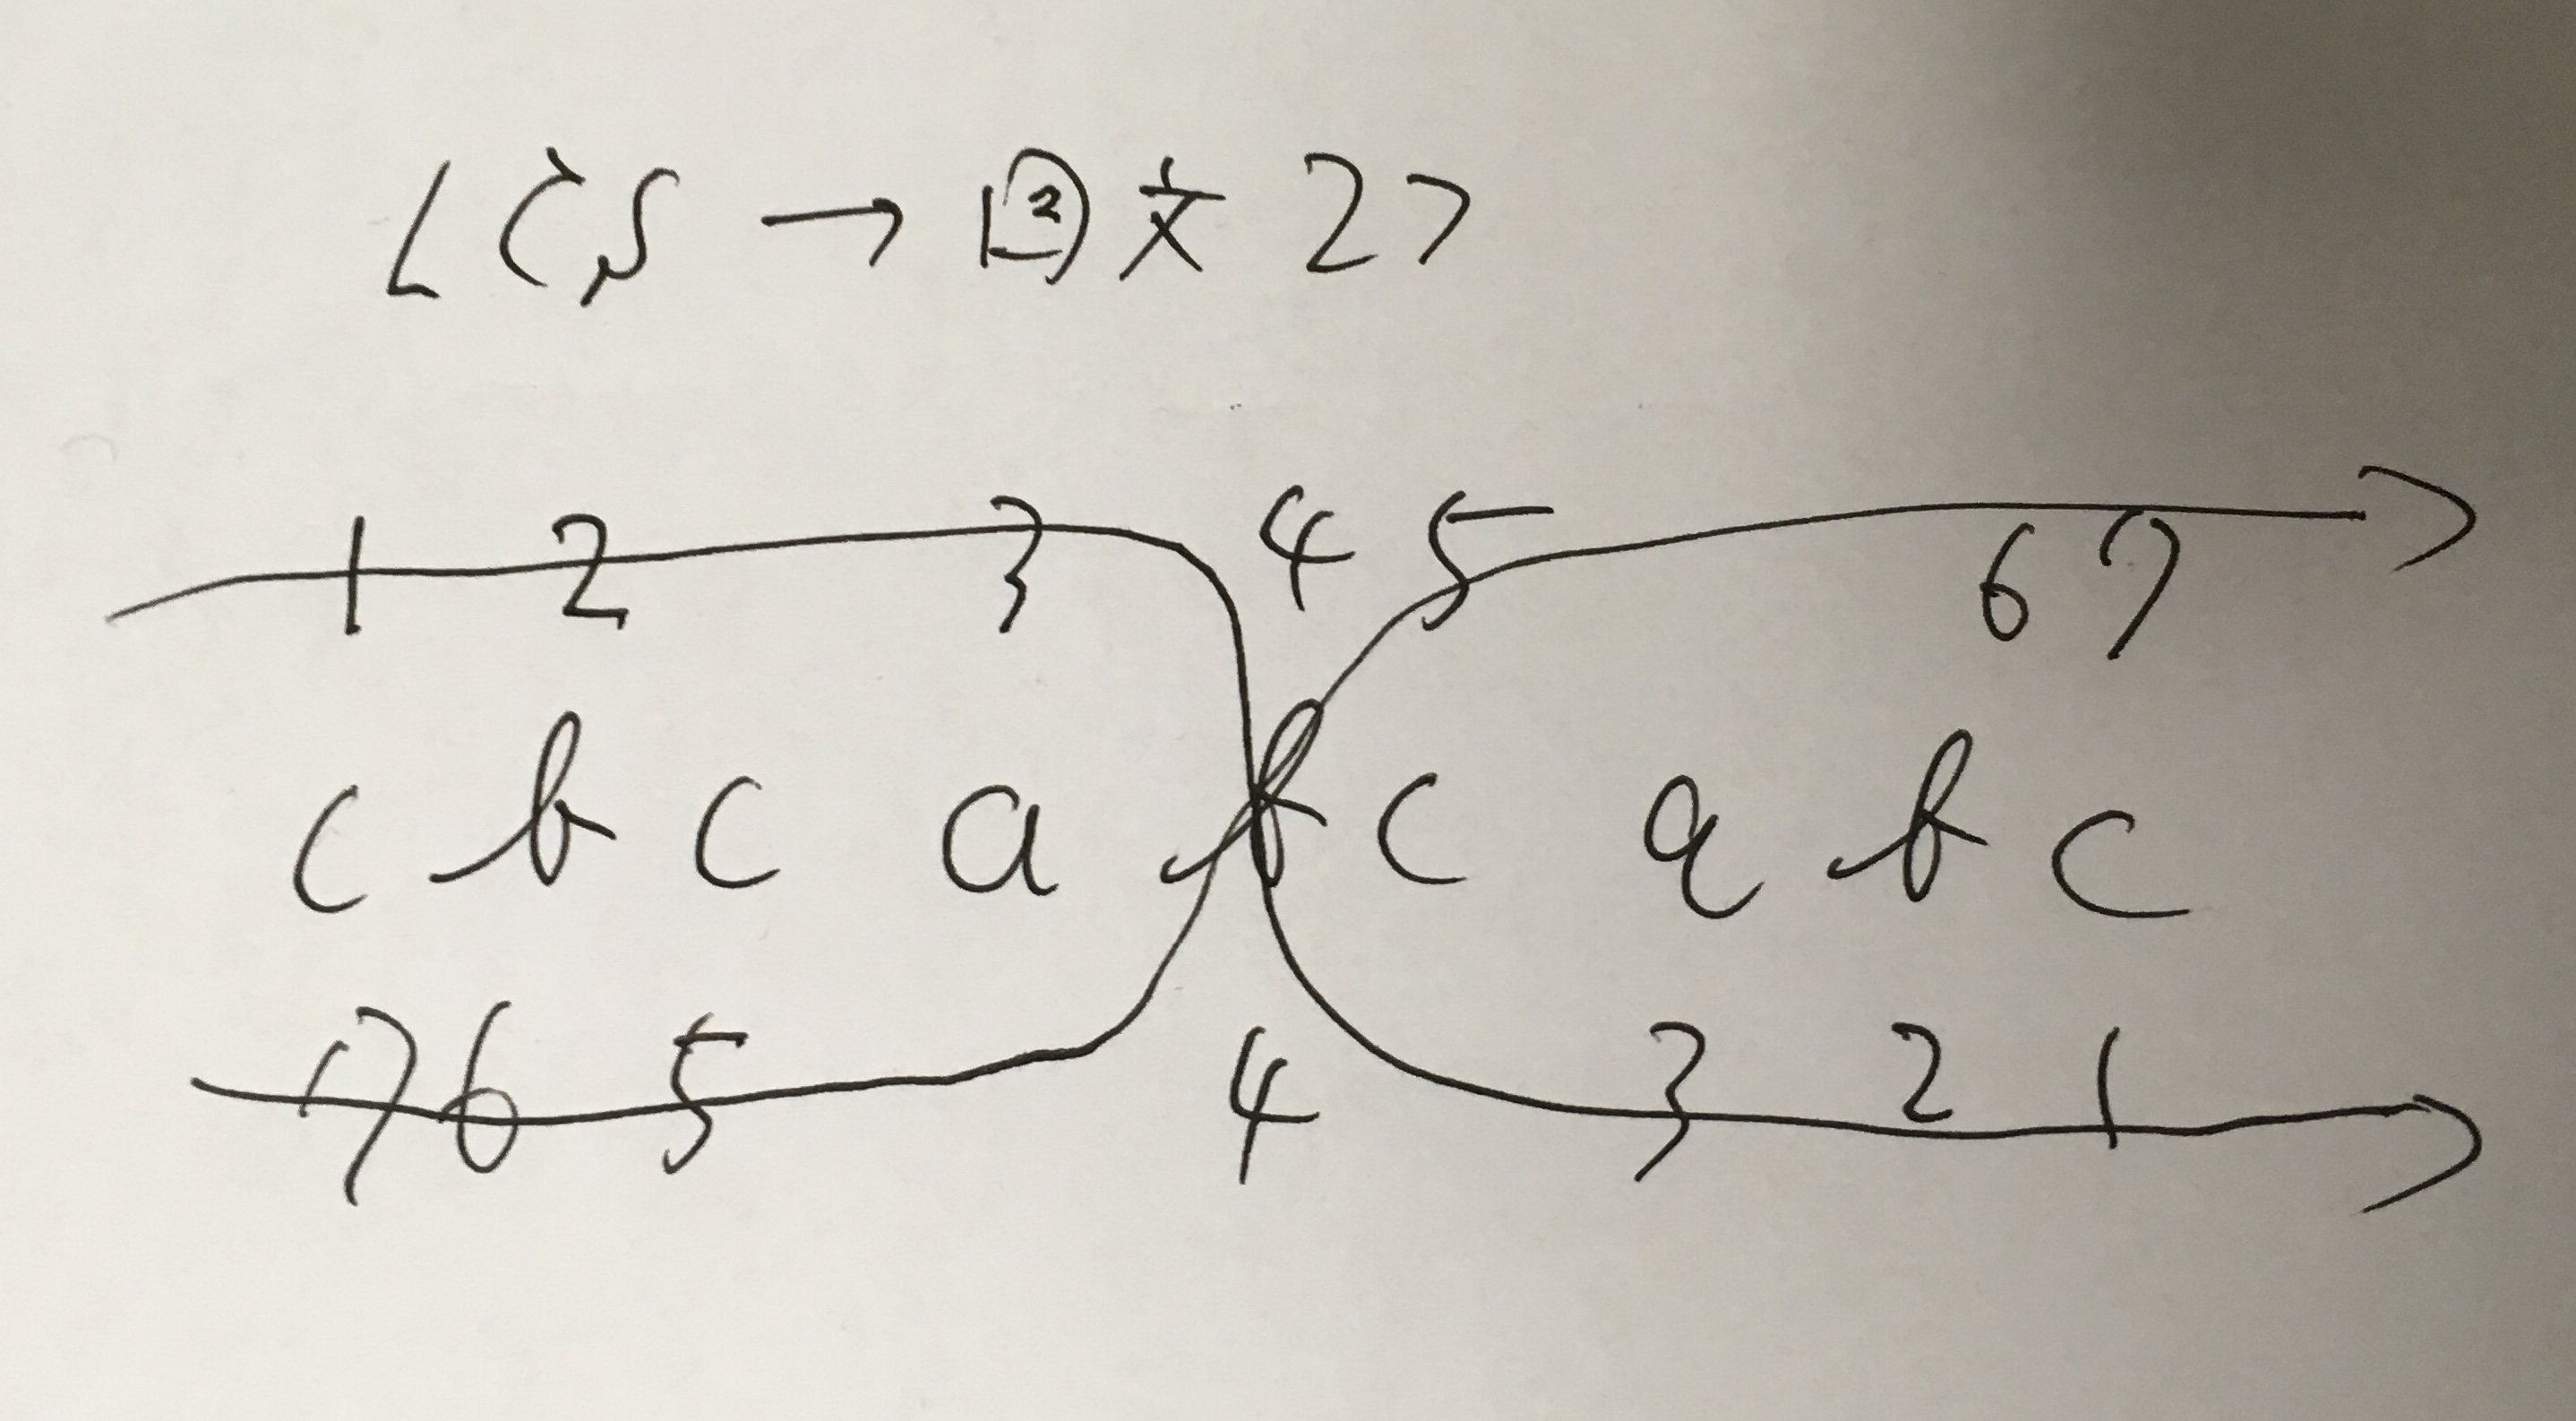 LCS → 回文 27
1 2 3 4 5 6 7
c b c a b c a b c
7 6 5 4 3 2 1